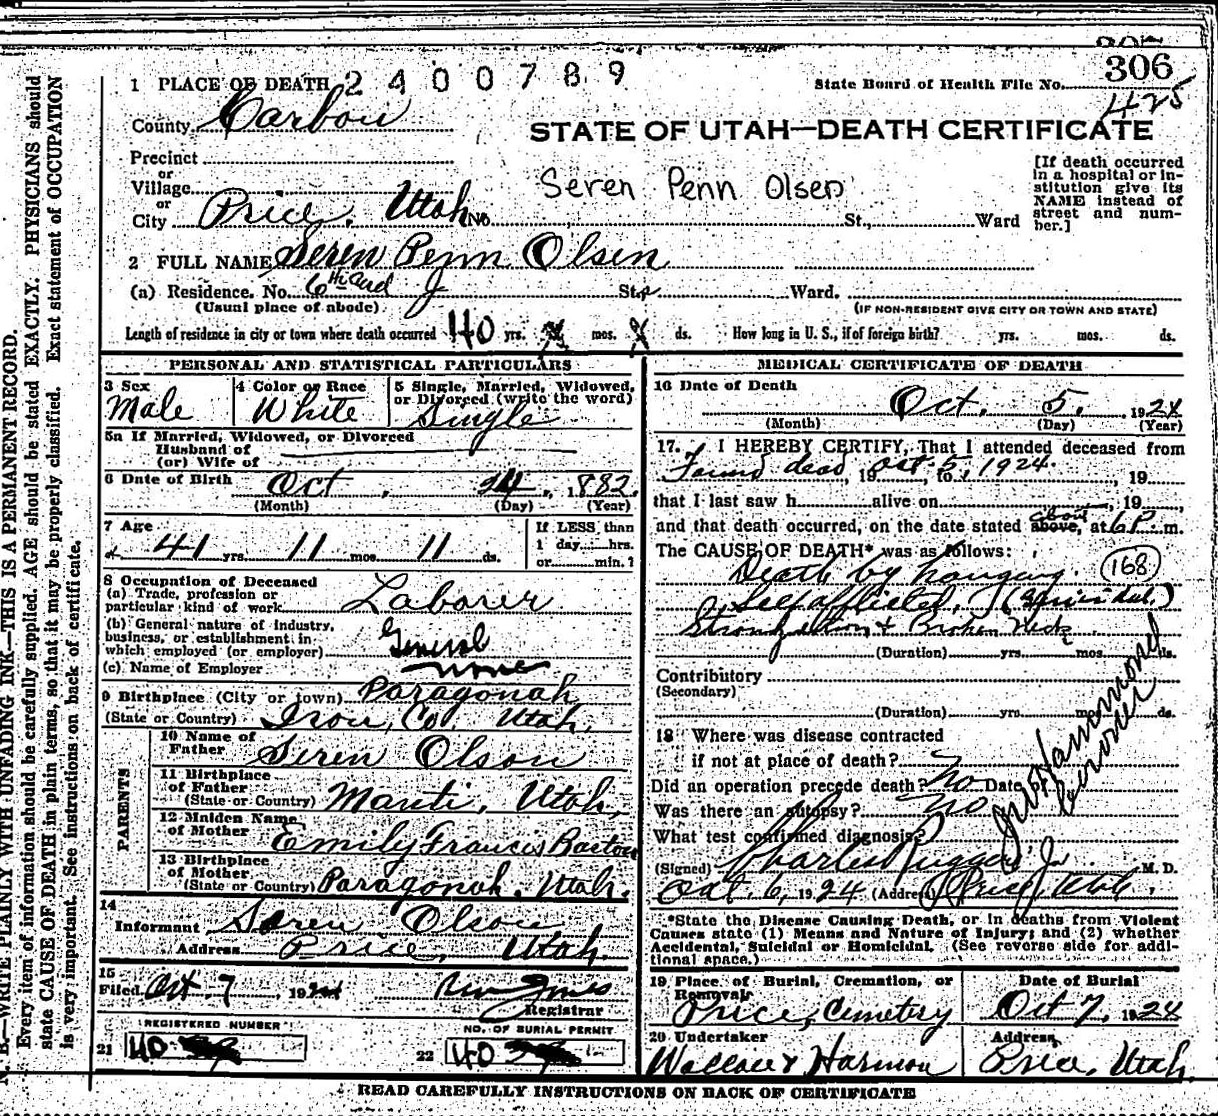 306
1 PLACE OF DEATH 2400789
State Board of Health File No.
425
County Carbon
STATE OF UTAH—DEATH CERTIFICATE
Precinct
or
Village
or
City Price, Utah No. St., Ward
Seren Penn Olsen
[If death occurred in a hospital or institution give its NAME instead of street and number.]
2 FULL NAME Seren Penn Olsen
(a) Residence. No. 6th and J St., Ward.
(Usual place of abode) (IF NON-RESIDENT GIVE CITY OR TOWN AND STATE)
Length of residence in city or town where death occurred 40 yrs. mos. ds. How long in U. S., if of foreign birth? yrs. mos. ds.
PERSONAL AND STATISTICAL PARTICULARS
3 Sex Male
4 Color or Race White
5 Single, Married, Widowed, or Divorced (write the word) Single
5a If Married, Widowed, or Divorced
Husband of
(or) Wife of
6 Date of Birth Oct. 24, 1882.
(Month) (Day) (Year)
7 Age 41 yrs. 11 mos. 11 ds.
If LESS than
1 day hrs.
or min.?
8 Occupation of Deceased
(a) Trade, profession or particular kind of work Laborer
(b) General nature of industry, business, or establishment in which employed (or employer) General
(c) Name of Employer None
9 Birthplace (City or town) Paragonah
(State or Country) Iron Co. Utah.
PARENTS
10 Name of Father Seren Olson
11 Birthplace of Father (State or Country) Manti, Utah,
12 Maiden Name of Mother Emily Francis Barton
13 Birthplace of Mother (State or Country) Paragonah. Utah.
14
Informant Soren Olson
Address Price, Utah.
15
Filed Oct. 7, 1924
Registrar
REGISTERED NUMBER NO. OF BURIAL PERMIT
21 40 22 40
MEDICAL CERTIFICATE OF DEATH
16 Date of Death
Oct. 5. 1924
(Month) (Day) (Year)
17. I HEREBY CERTIFY, That I attended deceased from
Found dead, 19 Oct. 5, to 1924. 19
that I last saw h alive on , 19 ,
and that death occurred, on the date stated above, about at 6 P. m.
The CAUSE OF DEATH* was as follows:
Death by hanging. 168
Self afflicted, (Suicidal)
Strangulation & Broken Neck
(Duration) yrs. mos. ds.
Contributory
(Secondary)
(Duration) yrs. mos. ds.
18 Where was disease contracted
if not at place of death?
Did an operation precede death? No Date
Was there an autopsy? No
What test confirmed diagnosis?
(Signed) Charles Ruggeri, Jr. M. D.
Oct. 6, 1924 (Address) Price, Utah.
Hammond
Coroner
*State the Disease Causing Death, or in deaths from Violent Causes state (1) Means and Nature of Injury; and (2) whether Accidental, Suicidal or Homicidal. (See reverse side for additional space.)
19 Place of Burial, Cremation, or Removal Price, Cemetery
Date of Burial Oct 7, 1924
20 Undertaker Wallace & Harmon
Address, Price, Utah.
READ CAREFULLY INSTRUCTIONS ON BACK OF CERTIFICATE
N. B.—WRITE PLAINLY WITH UNFADING INK—THIS IS A PERMANENT RECORD.
Every item of information should be carefully supplied. AGE should be stated EXACTLY. PHYSICIANS should
state CAUSE OF DEATH in plain terms, so that it may be properly classified. Exact statement of OCCUPATION
is very important. See instructions on back of certificate.